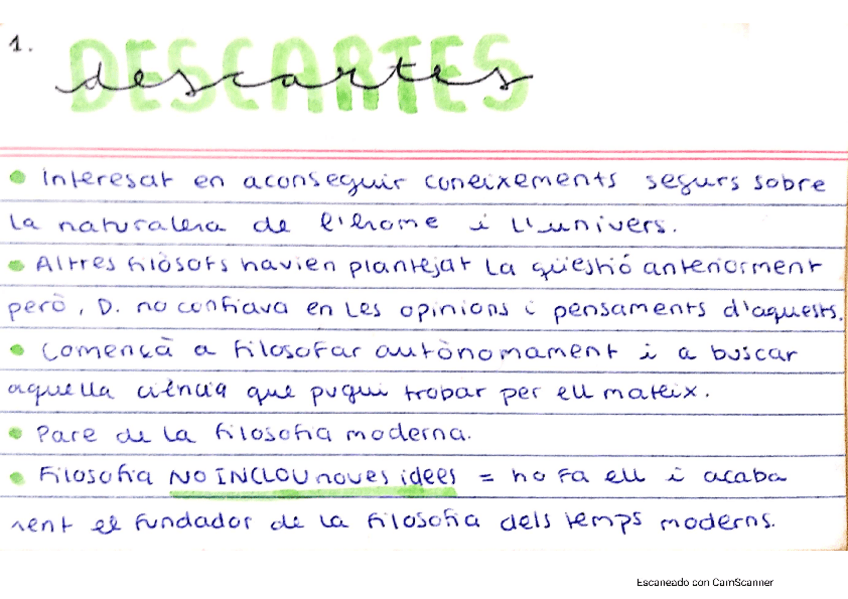 1.
DESCARTES
descartes
• Interesat en aconseguir coneixements segurs sobre
la naturalesa de l'home i l'univers.
• Altres filòsofs havien plantejat la qüestió anteriorment
però, D. no confiava en les opinions i pensaments d'aquests.
• Començà a filosofar autònomament i a buscar
aquella ciència que pugui trobar per ell mateix.
• Pare de la filosofia moderna.
• Filosofia NO INCLOU noves idees = ho fa ell i acaba
sent el fundador de la filosofia dels temps moderns.
Escaneado con CamScanner